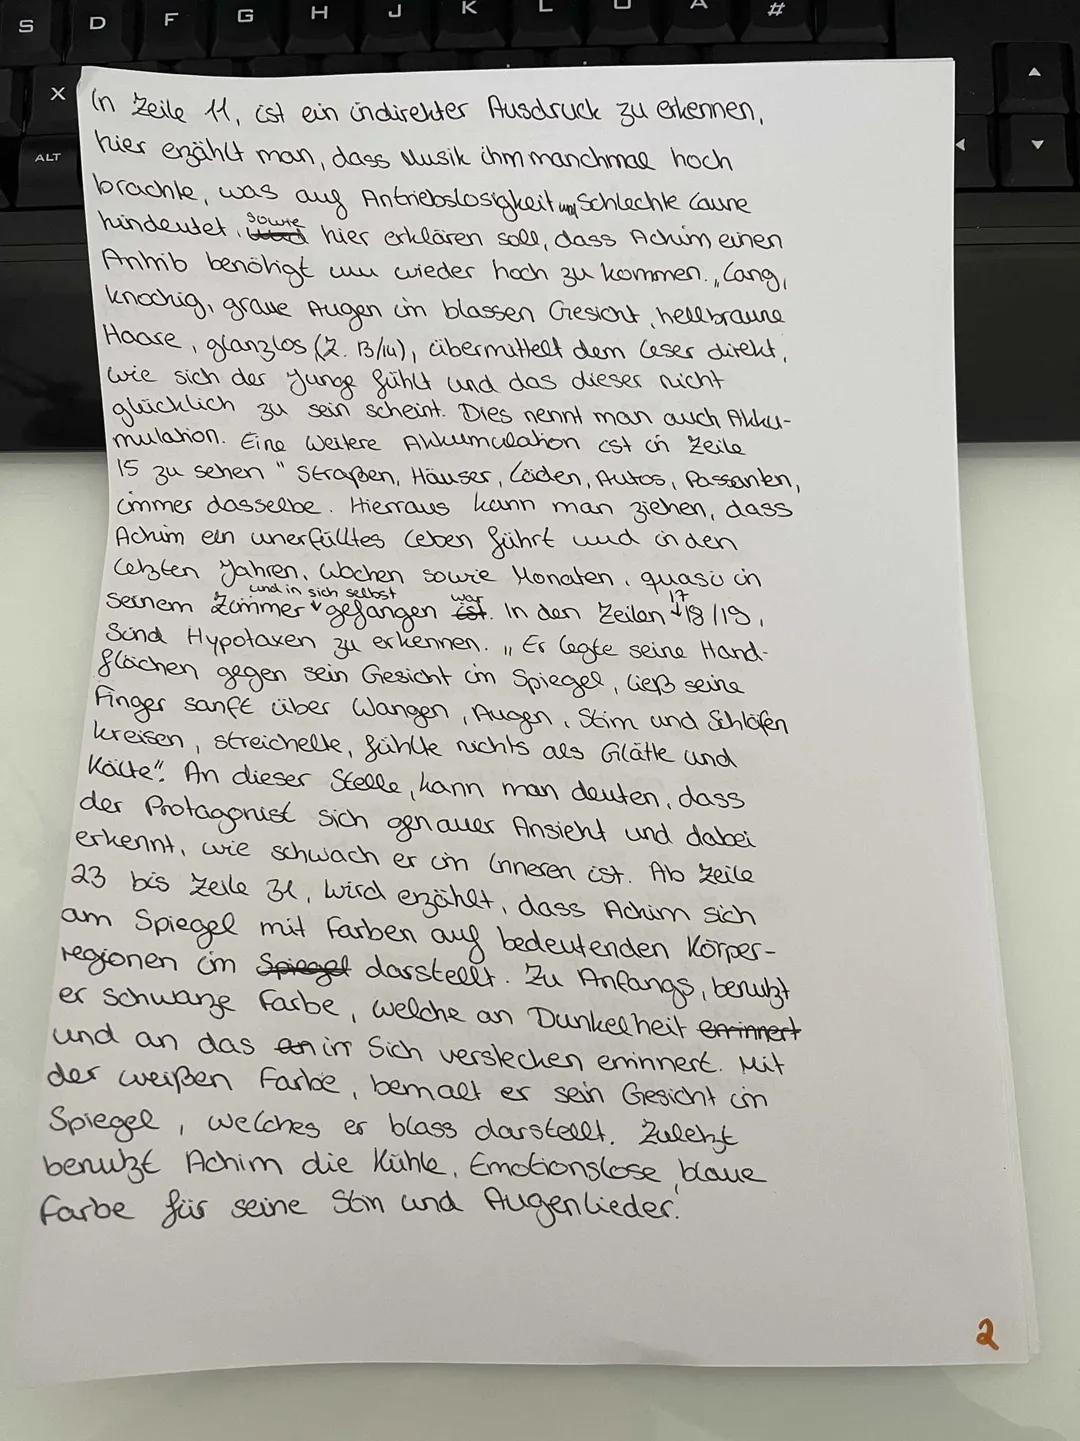 S D F G H J K L Ö Ä #
X
ALT
In Zeile 11, ist ein indirekter Ausdruck zu erkennen,
hier erzählt man, dass Musik ihm manchmal hoch
brachte, was auf Antriebslosigkeit und Schlechte Laune
hindeutet, sowie hier erklären soll, dass Achim einen
Antrib benötigt um wieder hoch zu kommen. „Lang,
knochig, graue Augen im blassen Gesicht, hellbraune
Haare, glanzlos (Z. 13/14), übermittelt dem Leser direkt,
wie sich der Junge fühlt und das dieser nicht
glücklich zu sein scheint. Dies nennt man auch Akku-
mulation. Eine Weitere Akkumulation ist in Zeile
15 zu sehen " Straßen, Häuser, Läden, Autos, Passanten,
immer dasselbe. Hierraus kann man ziehen, dass
Achim ein unerfülltes Leben führt und in den
letzten Jahren, Wochen sowie Monaten, quasi in
seinem Zimmer und in sich selbst gefangen war. In den Zeilen 17 18/19,
Sind Hypotaxen zu erkennen. „Er legte seine Hand-
flächen gegen sein Gesicht im Spiegel, ließ seine
Finger sanft über Wangen, Augen, Stirn und Schläfen
kreisen, streichelte, fühlte nichts als Glätte und
Kälte". An dieser Stelle, kann man deuten, dass
der Protagonist sich genauer Ansieht und dabei
erkennt, wie schwach er im Inneren ist. Ab Zeile
23 bis Zeile 31, wird erzählt, dass Achim sich
am Spiegel mit Farben auf bedeutenden Körper-
regionen im Spiegel darstellt. Zu Anfangs, benutzt
er schwarze Farbe, welche an Dunkelheit erinnert
und an das Sich verstecken erinnert. Mit
der weißen Farbe, bemalt er sein Gesicht im
Spiegel, welches er blass darstellt. Zuletzt
benutzt Achim die Kühle, Emotionslose, blaue
Farbe für seine Stirn und Augenlieder.
2